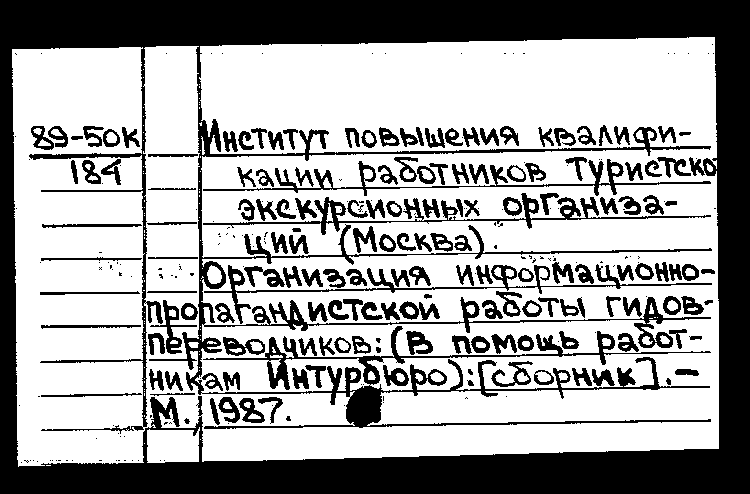 89-50к Институт повышения квалифи-
184 кации работников туристско
экскурсионных организа-
ций (Москва).
Организация информационно-
пропагандистской работы гидов-
переводчиков: (В помощь работ-
никам Интурбюро): [сборник]. —
М., 1987.